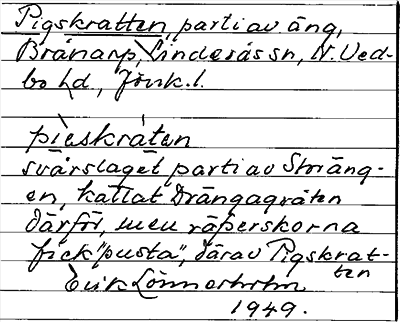 Pigskratten, parti av äng,
Brånarp, Linderås sn, N. Ved-
bo hd, Jönk. l.
pìeskråten
svårslaget parti av Storäng-
en, kallat Drängagråten
därför, men räfserskorna
fick "pusta", därav Pigskrat-
ten
Erik Lönnerholm
1949.